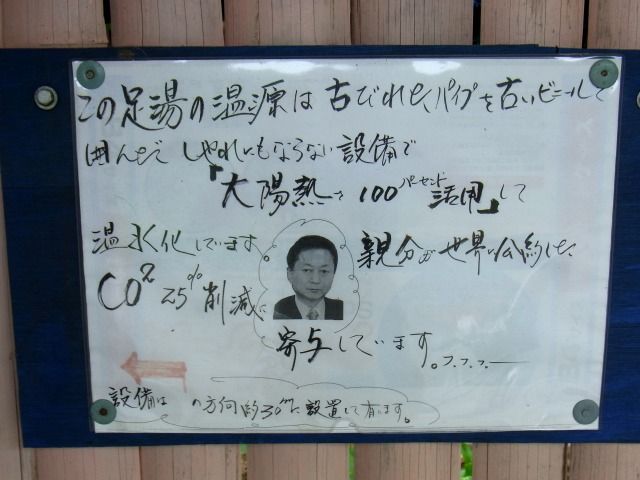 この足湯の温源は古びれた、パイプを古いビニールで
囲んだ しゃれにもならない設備で
「太陽熱を100パーセント活用」して
温水化しています。
親分が世界に公約した、
CO² 25%削減に
寄与しています。フ、フ、フ、ー
設備は の方向約30mに設置して有ります。